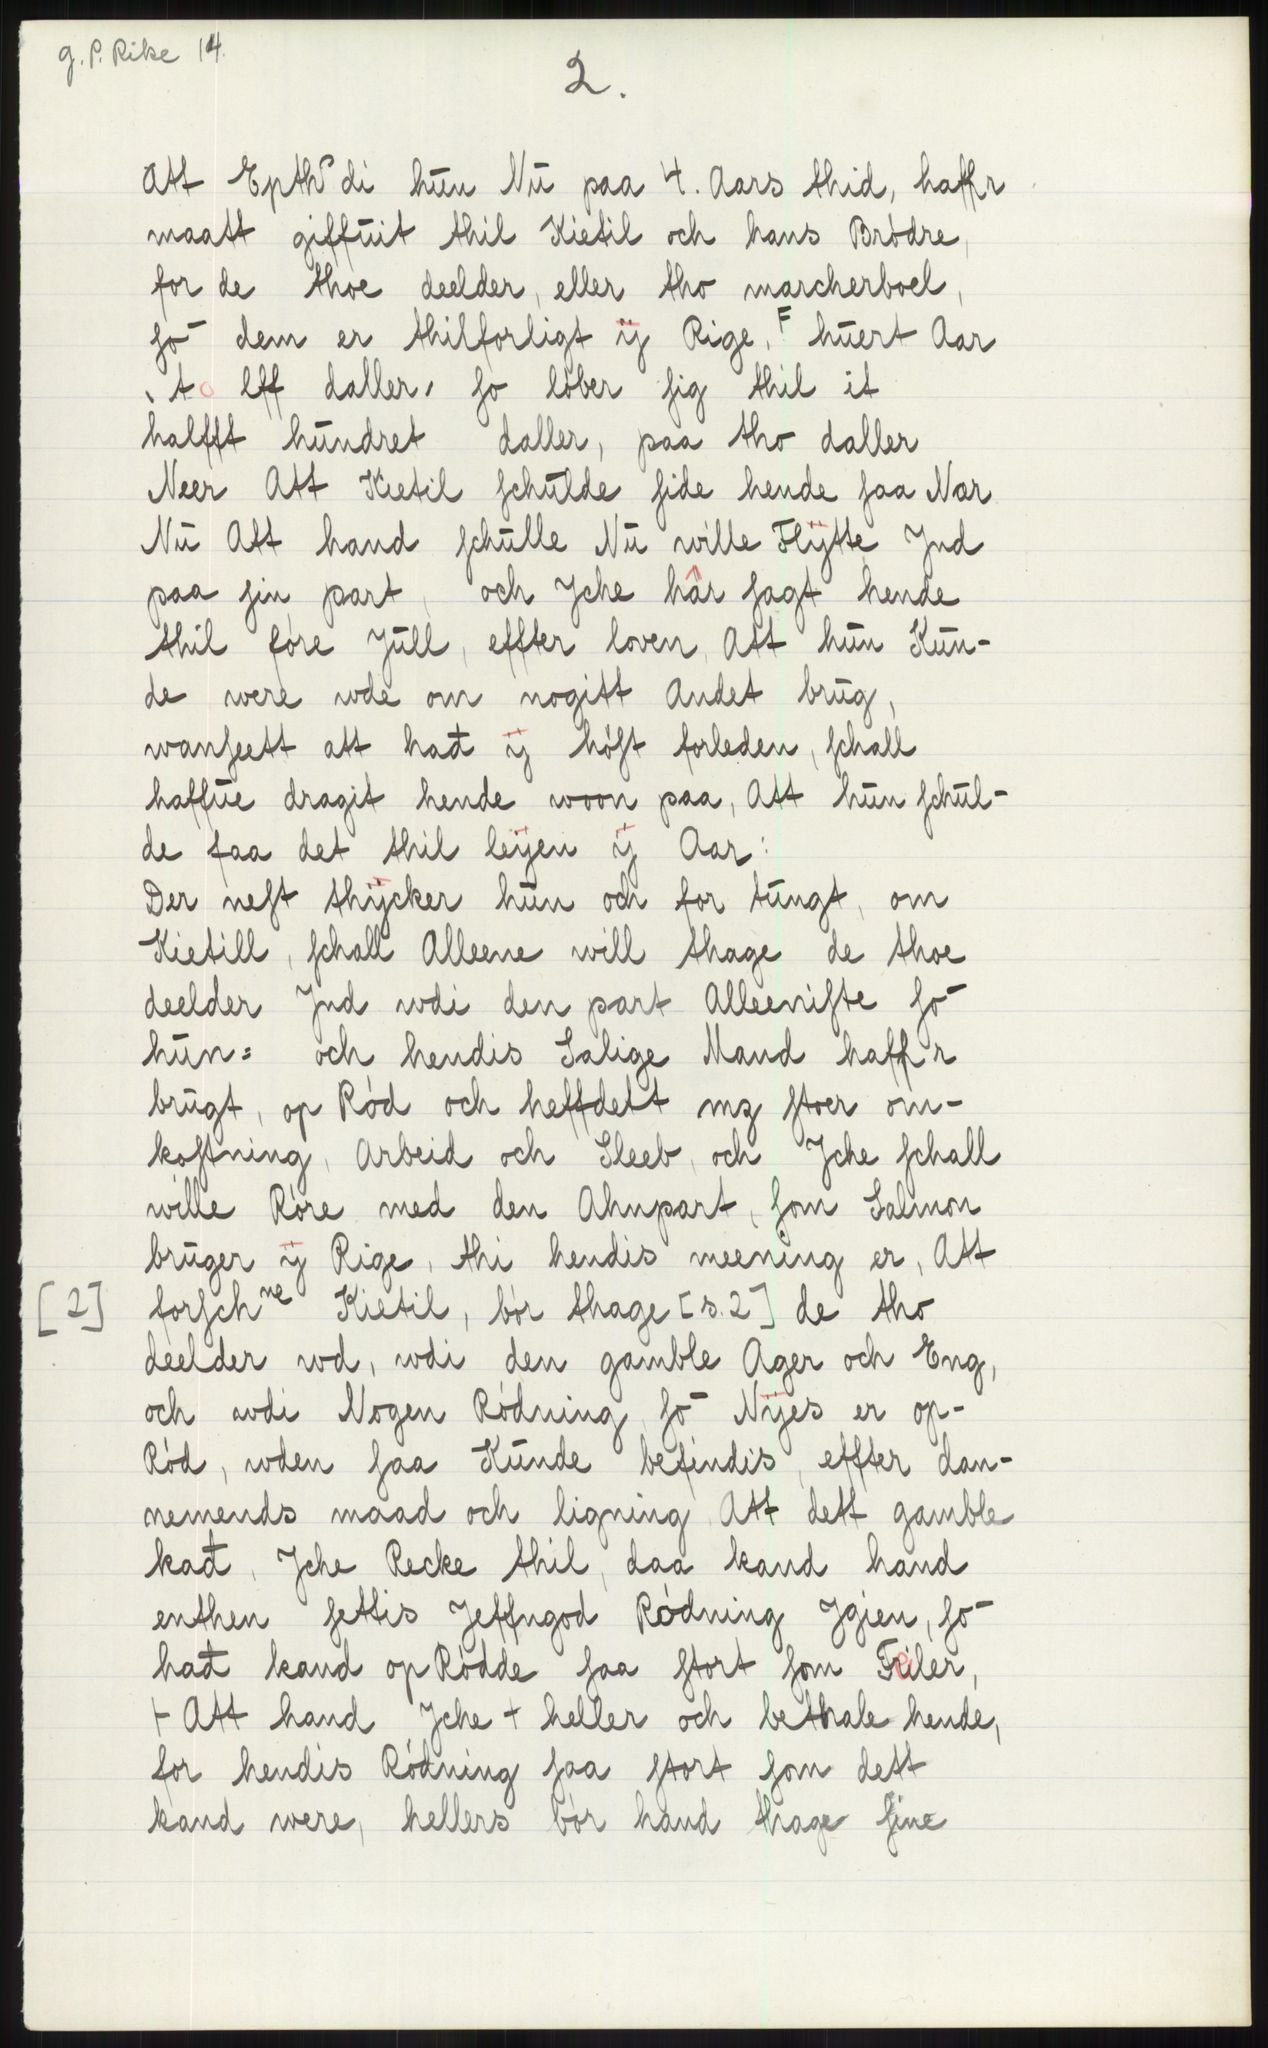 g. P. Rike 14.
2.
Att Epthʳdi hūn Nū paa 4. Aars thid, haffr
maatt giffūit thil Kietil och hans Brødre,
for de thoe deelder, eller tho marcherboel,
ſō dem er thilforligt ÿ Rige, F hūert Aar
to lff daller, ſo løber ſig thil it
halfft hūndret daller, paa tho daller
Neer Att Kietil ſchūlde ſide hende ſaa Nær
Nū Att hand ſchūlle Nū wille Flÿtte Jnd
paa ſin part, och Jche hâr ſagt hende
thil føre Jūll, effter loven, Att hūn Kūn-
de were wde om nogitt Andet brūg,
wanſeett att had ÿ høſt forleden, ſchall
haffūe dragit hende woon paa, Att hūn ſchūl-
de faa det thil leÿen ÿ Aar:
Der neſt thÿcker hūn och for tūngt, om
Kietill, ſchall Alleene will thage de thoe
deelder Jnd wdi den part Alleeniſte ſō
hūn= och hendis Salige Mand haffr
brūgt, op Rød och heffdett mz ſtoer om-
koſtning, Arbeid och Sleeb, och Jche ſchall
wille Røre med den Ahnpart, ſom Salmon
brūger ÿ Rige, thi hendis meening er, Att
[2] forſchne Kietil, bør thage [s. 2] de tho
deelder wd, wdi den gamble Ager och Eng,
och wdi Nogen Rødning ſō Nÿes er op-
Rød, wden ſaa Kūnde befindis, effter dan-
nemends maad och ligning Att dett gamble
kađ, Jche Recke thil, daa kand hand
enthen ſettis Jeffngod Rødning Jgien, ſō
hađ kand op Rødde ſaa ſtort ſom Feiler,
+ Att hand Jche + heller och bethale hende,
for hendis Rødning ſaa ſtort ſom dett
kand were, hellers bør hand thage ſine